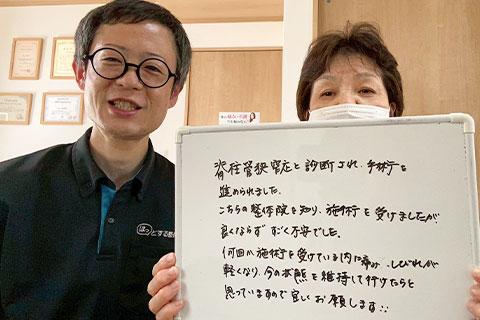 脊柱管狭窄症と診断され、手術を
進められました。
こちらの整体院を知り、施術を受けましたが
良くならず すごく不安でした。
何回か施術を受けている内に痛み、しびれが
軽くなり、今の状態を維持して行けたらと
思っていますので宜しくお願します!!
ほっとする整体